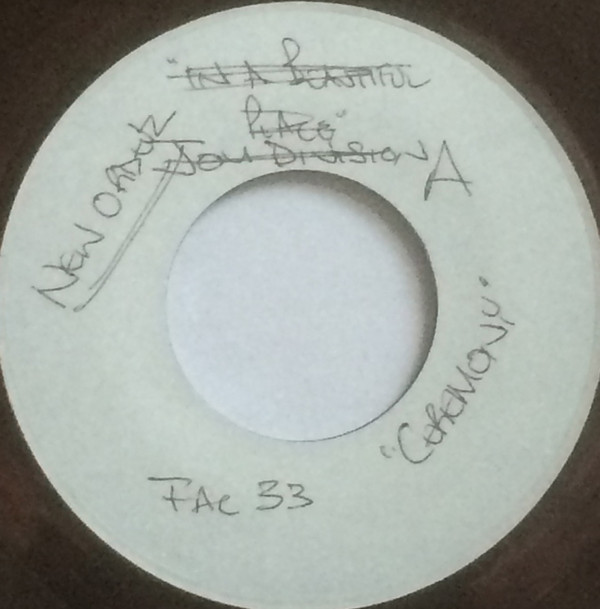 "IN A BEAUTIFUL
PLACE"
JOY DIVISION A
NEW ORDER
"CEREMONY"
FAC 33